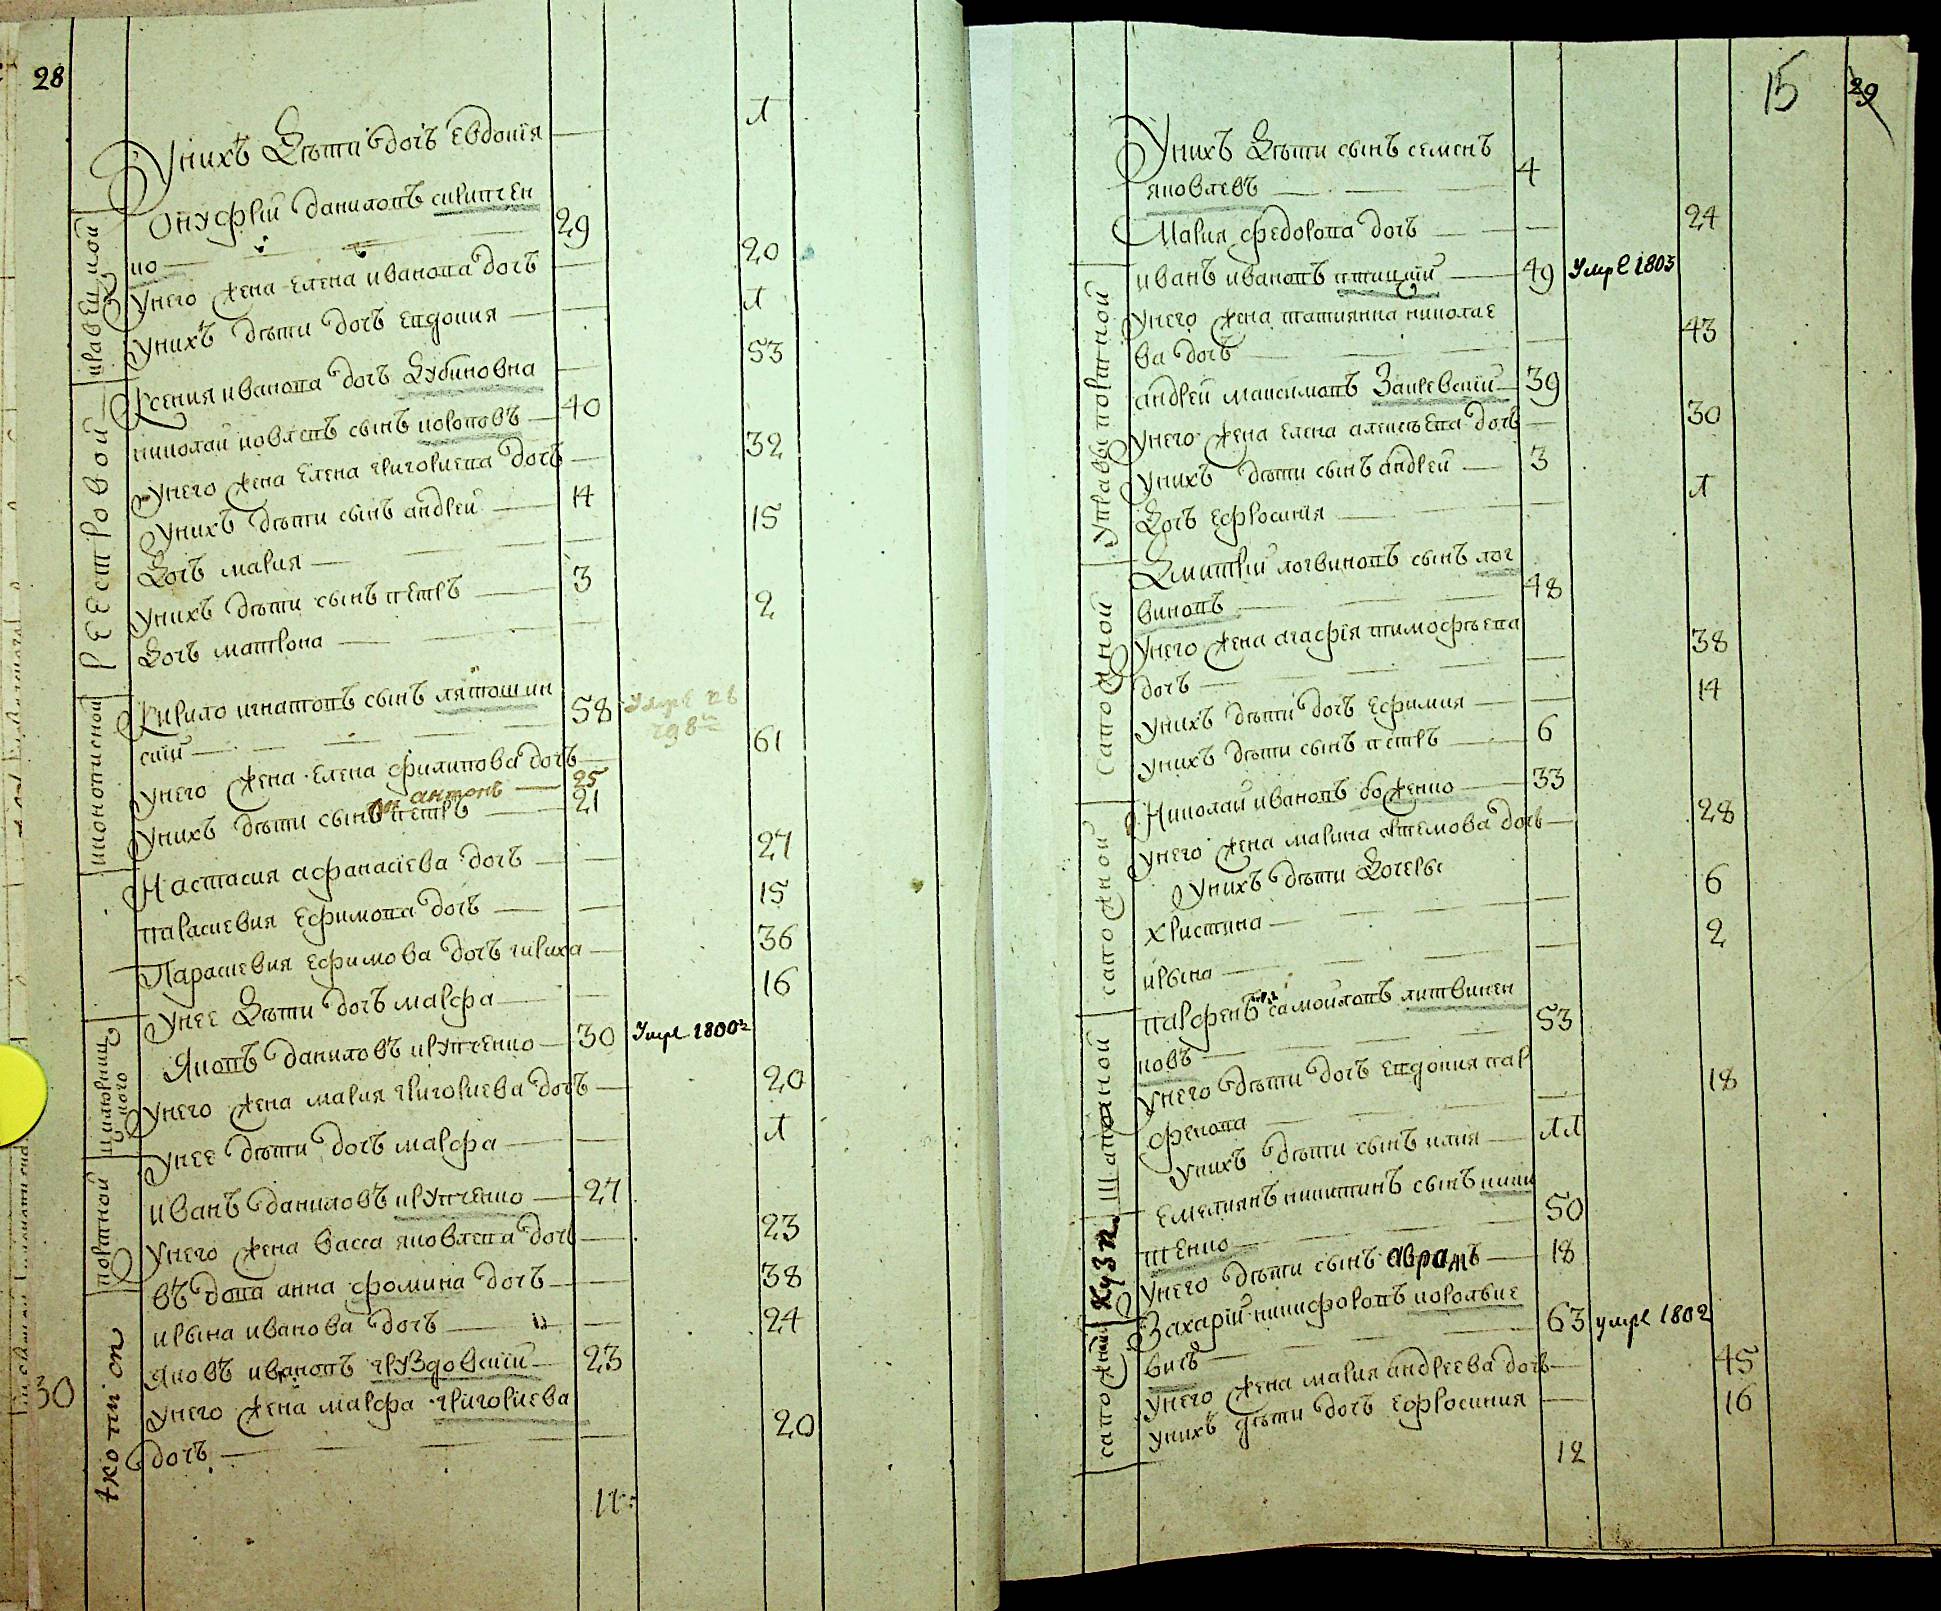 28
Унихъ Дѣти дочь Евдокія — 1
кравецкой
Онуфрій даниловъ скрипчен
ко — 29
Унего жена Елена иванова дочь — 20
Унихъ дѣти дочь Евдокия — 1
реестровой
Ксения иванова дочь Дубиновна — 53
николай яковлевъ сынъ короповъ — 40
Унего жена Елена григориева дочь — 32
Унихъ дѣти сынъ андрей — 14
Дочь мария — 15
Унихъ дѣти сынъ петръ — 3
Дочь матрона — 2
иконописной
Кирило игнатовъ сынъ лятошин
ский — 58 Умре
61
Унего жена Елена филипова дочь
антонъ — 25
Унихъ дѣти сынъ петръ — 21
Настасия афанасіева дочь — 27
параскевия Ефимова дочь — 15
Параскевия ефимова дочь — 36
Унее Дѣти дочь марфа — 16
Яковъ даниловъ крупченко — 30 Умре 1800г
Унего жена мария григориева дочь — 20
Унее дѣти дочь марфа — 1
портной
иванъ даниловъ крупченко — 27
Унего жена васса яковлева дочь — 23
вдова анна фомина дочь — 38
ирына иванова дочь — 24
Яковъ ивановъ груздовский — 23
30
Унего жена марфа григориева
дочь — 20
11
15 29
Унихъ Дѣти сынъ семенъ
яковлевъ — 4
Мария федорова дочь — 24
иванъ ивановъ птицкий — 49 Умре 1803
Унего жена татиянна николае
ва дочь — 43
андрей максимовъ Закревский — 39
Унего жена Елена алексѣева дочь — 30
Унихъ дѣти сынъ андрей — 3
Дочь Ефросинія — 1
сапожной
Дмитрій логвиновъ сынъ лог
виновъ — 48
Унего жена агафія тимофѣева
дочь — 38
Унихъ дѣти дочь Ефимия — 14
Унихъ дѣти сынъ петръ — 6
сапожной
Николай ивановъ боженко — 33
Унего жена марина артемова дочь — 28
Унихъ дѣти Дочеры
христина — 6
ирына — 2
парфенъ самойловъ литвинен
ковъ — 53
Унего дѣти дочь Евдокия пар
фенова — 18
Унихъ дѣти сынъ илия — 11
Кузн.
Емелианъ никитинъ сынъ ники
тенко — 50
Унего дѣти сынъ аврамъ — 18
Захарій никифоровъ королке
вичъ — 63 умре 1802
Унего жена мария андреева дочь — 45
Унихъ дѣти дочь ефросиния — 16
12